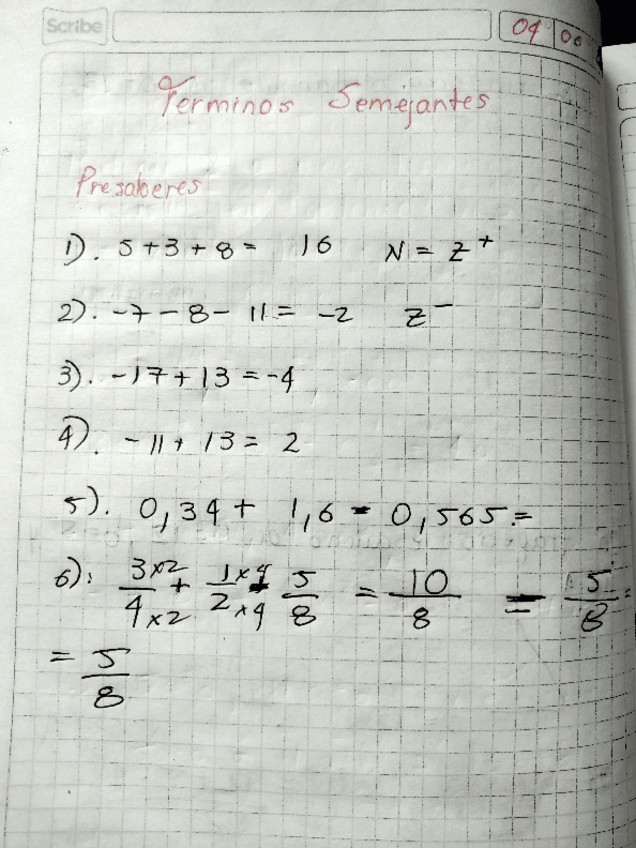 Scribe 04 00
Terminos Semejantes
Presaberes
1). 5 + 3 + 8 = 16 N = Z⁺
2). -7 - 8 - 11 = -2 Z⁻
3). -17 + 13 = -4
4). -11 + 13 = 2
5). 0,34 + 1,6 - 0,565 =
6): 3×2/4×2 + 1×4/2×4 - 5/8 = 10/8 - 5/8 =
= 5/8